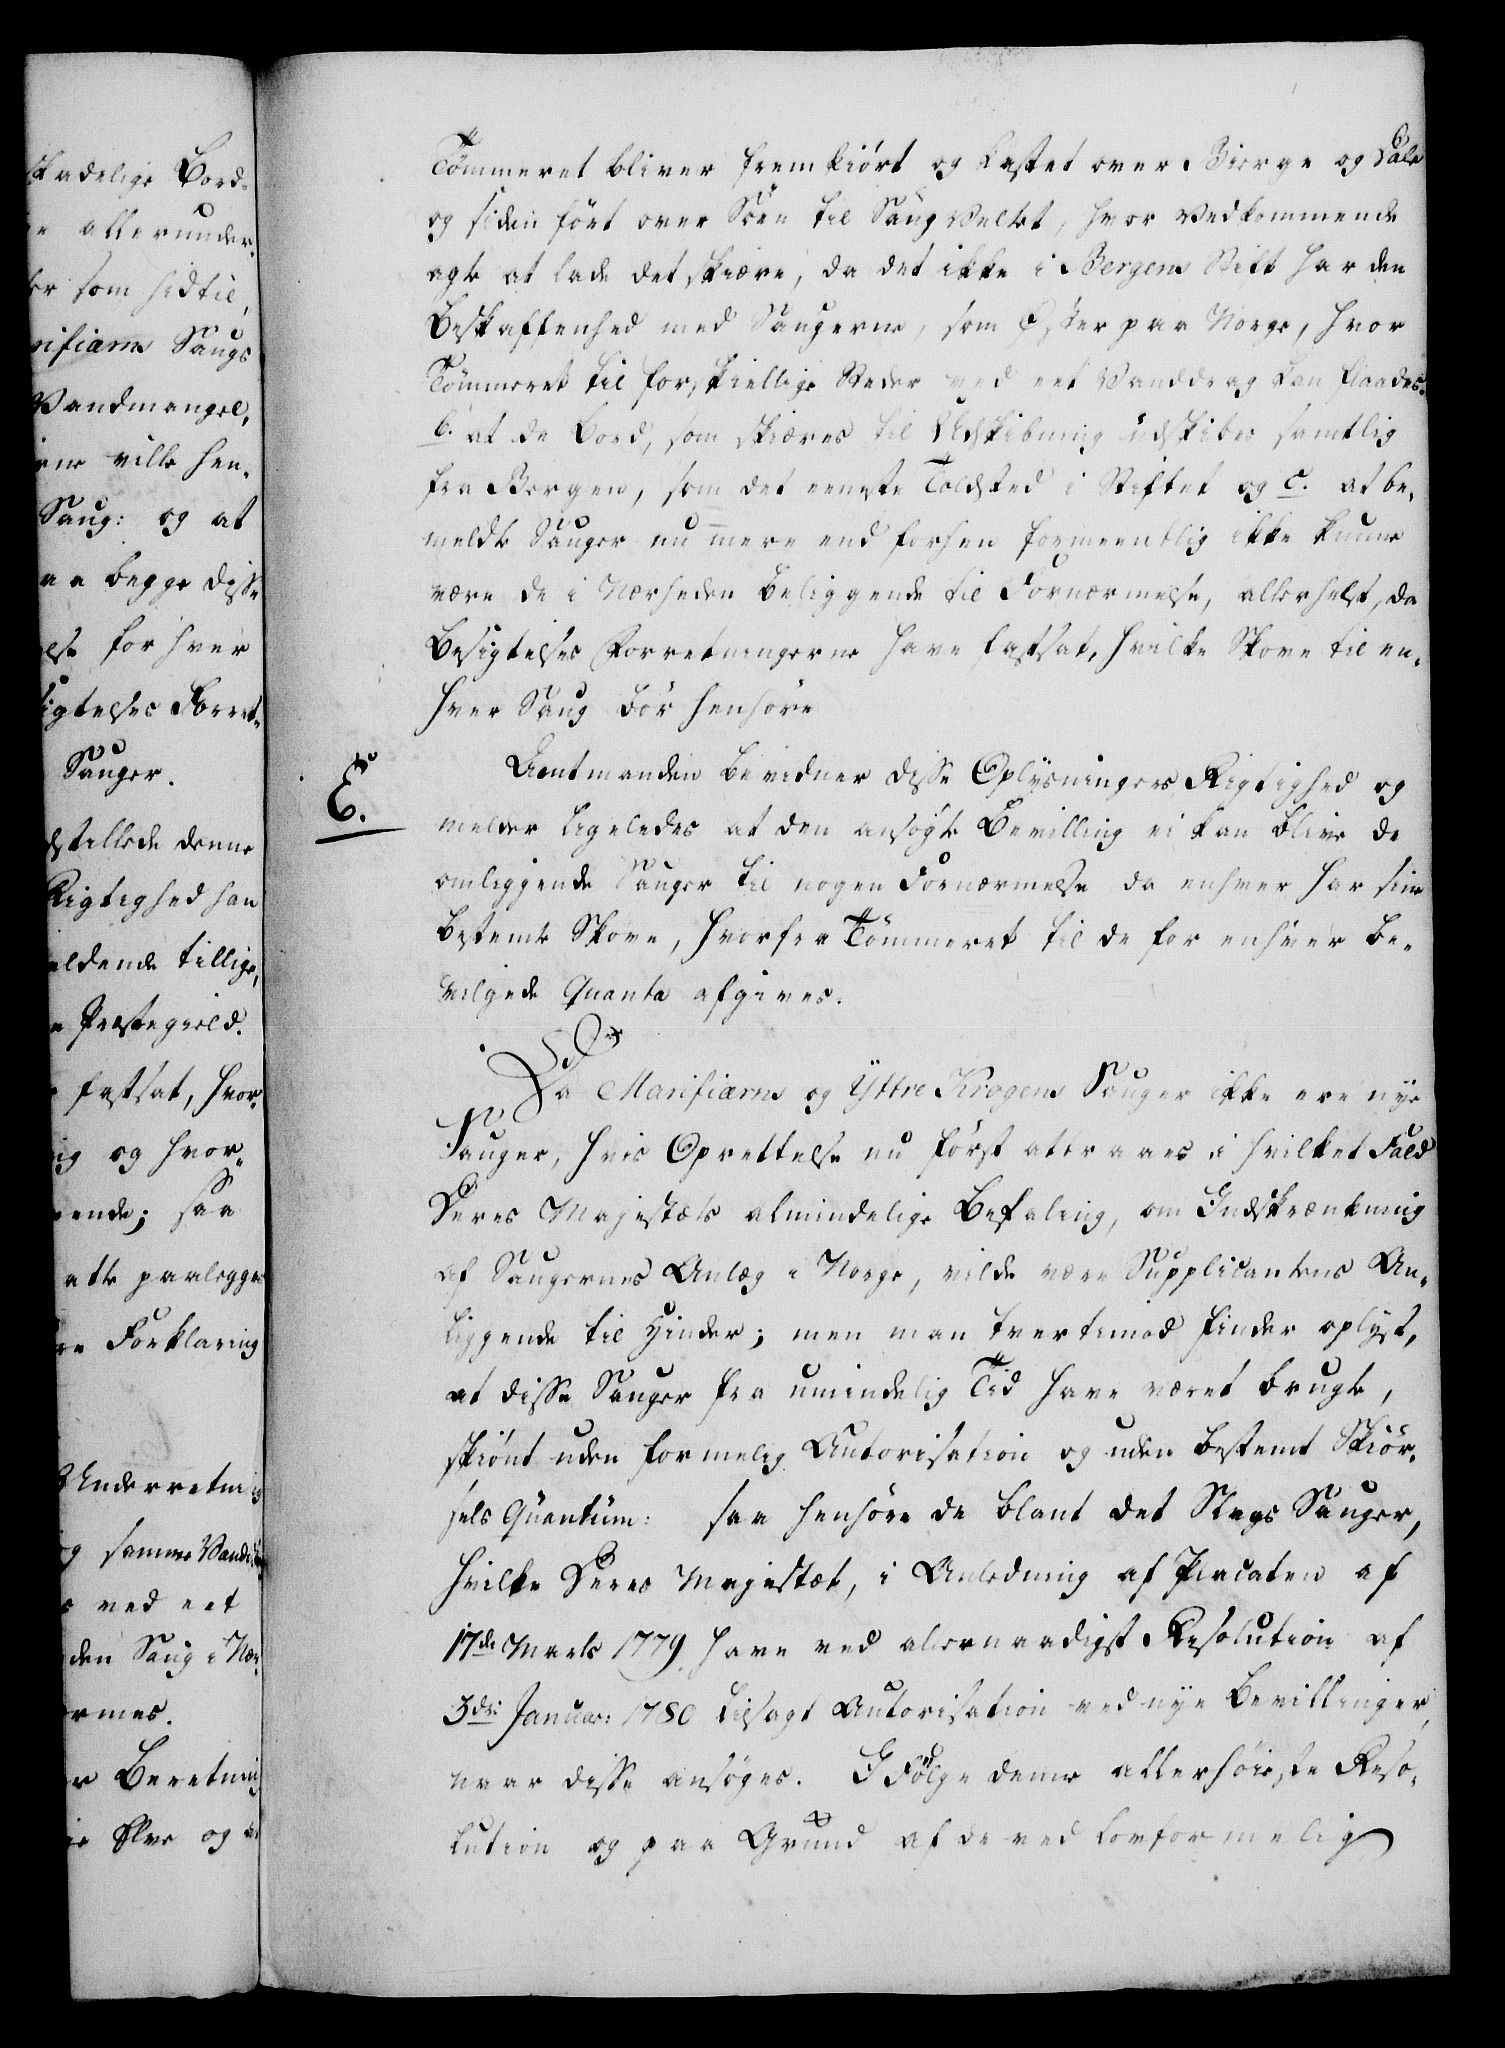 skadelige Bord-
e allerunder-
er som hidtil,
rifiærns Saugs
Vandmangel,
erne ville hen-
Saug: og at
aa begge disse
else for hver
sigtelses Forret-
Sauger.
dstillede denne
Rigtighed han
eldende tillige,
e Præstegield.
fastsat, hvor-
ig og hvor-
eende; saa
atte paalegges
re Forklaring
Underretning
g samme Vand
e ved eet
den Saug i Nær-
ermes.
er Beretning
ge Elve og
Tømmeret bliver fremkiørt og kastet over Bierge og Dale
og siden ført over Søen til Saug Veltet, hvor Vedkommende
agte at lade det skiære, da det ikke i Bergens Stift har den
Beskaffenhed med Saugerne, som Øster paa Norge, hvor
Tømmeret til forskiellige Steder ved eet Vanddrag kan flaades.
b. at de Bord, som skiæres til Udskibning udskibes samtlig
fra Bergen, som det eeneste Toldsted i Stiftet og c. at be-
meldte Sauger nu mere end forhen formeentlig ikke kunne
være de i Nærheden beliggende til Fornærmelse, allerhelst, da
Besigtelses Forretningerne have fastsat, hvilke Skove til en-
hver Saug bør henhøre
E.
Amtmanden bevidner disse Oplysningers Rigtighed og
melder ligeledes at den ansøgte Bevilling ei kan blive de
omliggende Sauger til nogen Fornærmelse da enhver har sine
bestemte Skove, hvorfra Tømmeret til de for enhver be-
vilgede Quanta afgives.
Da Marifiærns og Yttre Krogens Sauger ikke ere nye
Sauger, hvis Oprettelse nu først attraaes i hvilket Fald
Deres Majestæts almindelige Befaling, om Indskrænkning
af Saugernes Anlæg i Norge, vilde være Supplicantens An-
liggende til Hinder; men man tvertimod finder oplyst,
at disse Sauger fra umindelig Tid have været brugte,
skiønt uden formelig Autorisation og uden bestemt Skiør-
sels Quantum: saa henhøre de blant det Slags Sauger,
hvilke Deres Majestæt, i Anledning af Placaten af
17de Marts 1779 have ved allernaadigst Resolution af
3die Januar: 1780 tilsagt Autorisation ved nye Bevillinger,
naar disse ansøges. I Følge denne allerhøieste Reso-
lution og paa Grund af de ved lovformelig